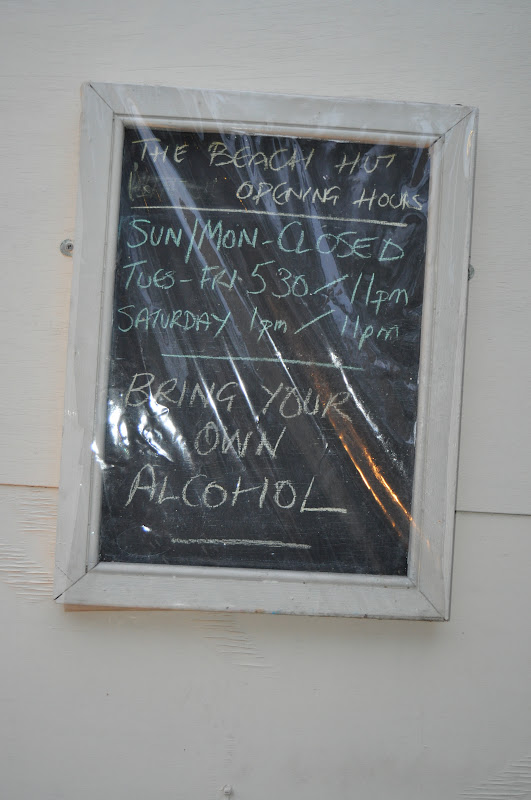 THE BEACH HUT
OPENING HOURS
SUN/MON-CLOSED
TUES-FRI 530/11pm
SATURDAY 1pm/11pm
BRING YOUR
OWN
ALCOHOL